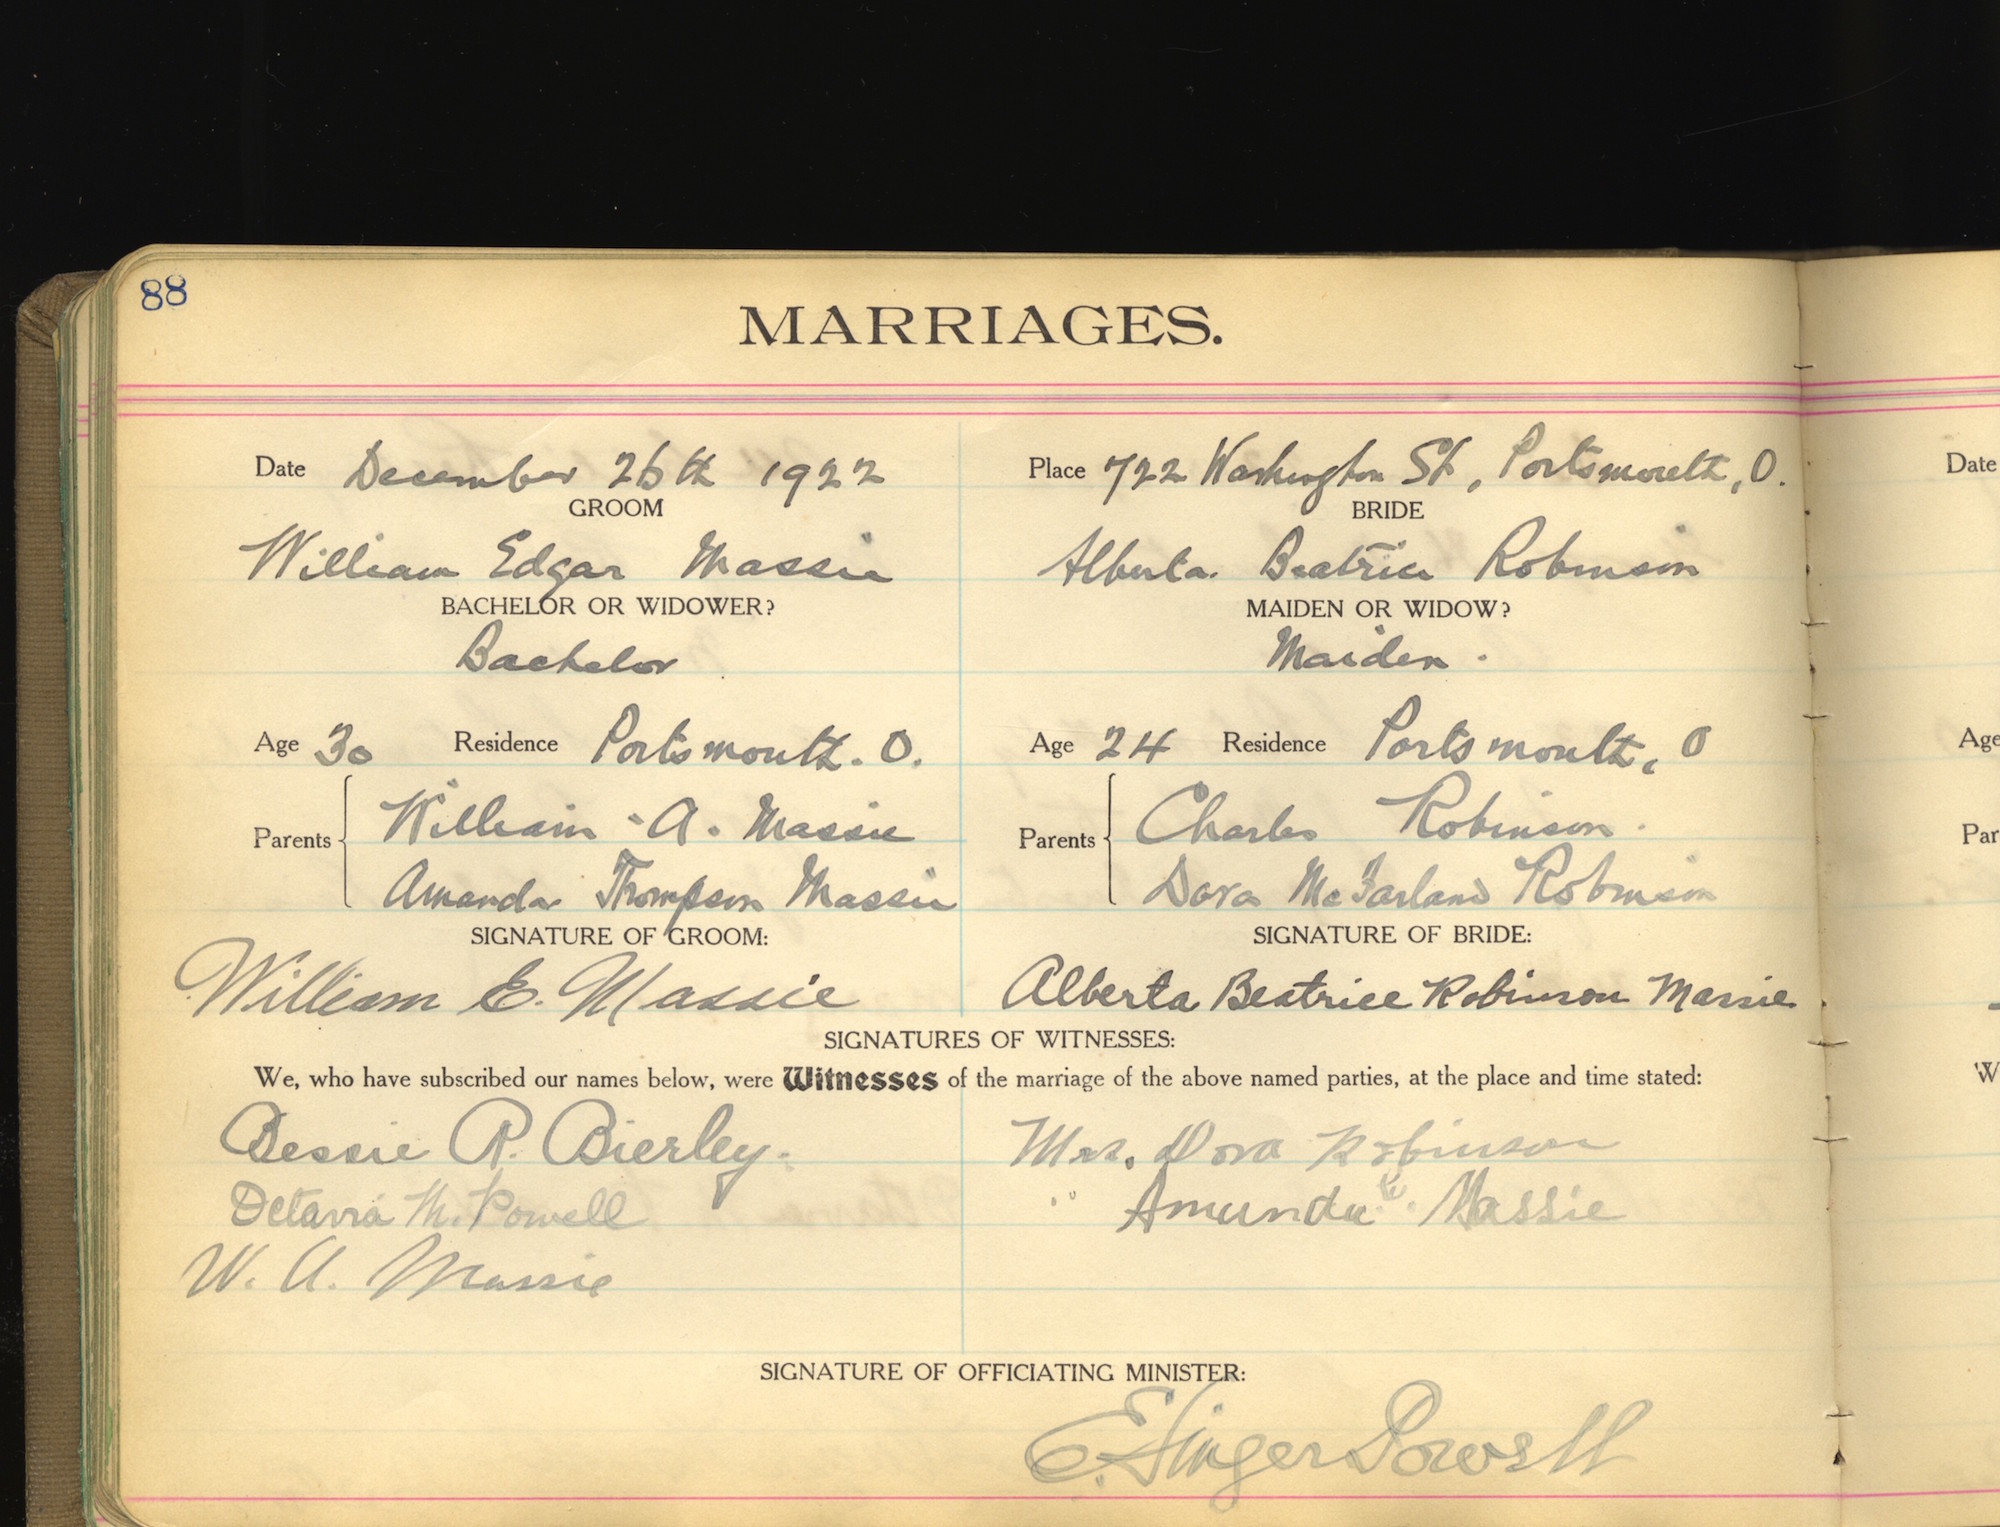 88
MARRIAGES.
Date December 26th 1922 Place 722 Washington St, Portsmouth, O. Date
GROOM BRIDE
William Edgar Massie Alberta Beatrice Robinson
BACHELOR OR WIDOWER? MAIDEN OR WIDOW?
Bachelor Maiden.
Age 30 Residence Portsmouth. O. Age 24 Residence Portsmouth, O Age
Parents William A. Massie Parents Charles Robinson. Par
Amanda Thompson Massie Dora McFarland Robinson
SIGNATURE OF GROOM: SIGNATURE OF BRIDE:
William E. Massie Alberta Beatrice Robinson Massie.
SIGNATURES OF WITNESSES:
We, who have subscribed our names below, were Witnesses of the marriage of the above named parties, at the place and time stated: W
Bessie R. Bierley. Mrs. Dora Robinson
M. Powell " Amunda Massie
W. A. Massie
SIGNATURE OF OFFICIATING MINISTER:
E. Singer Powell